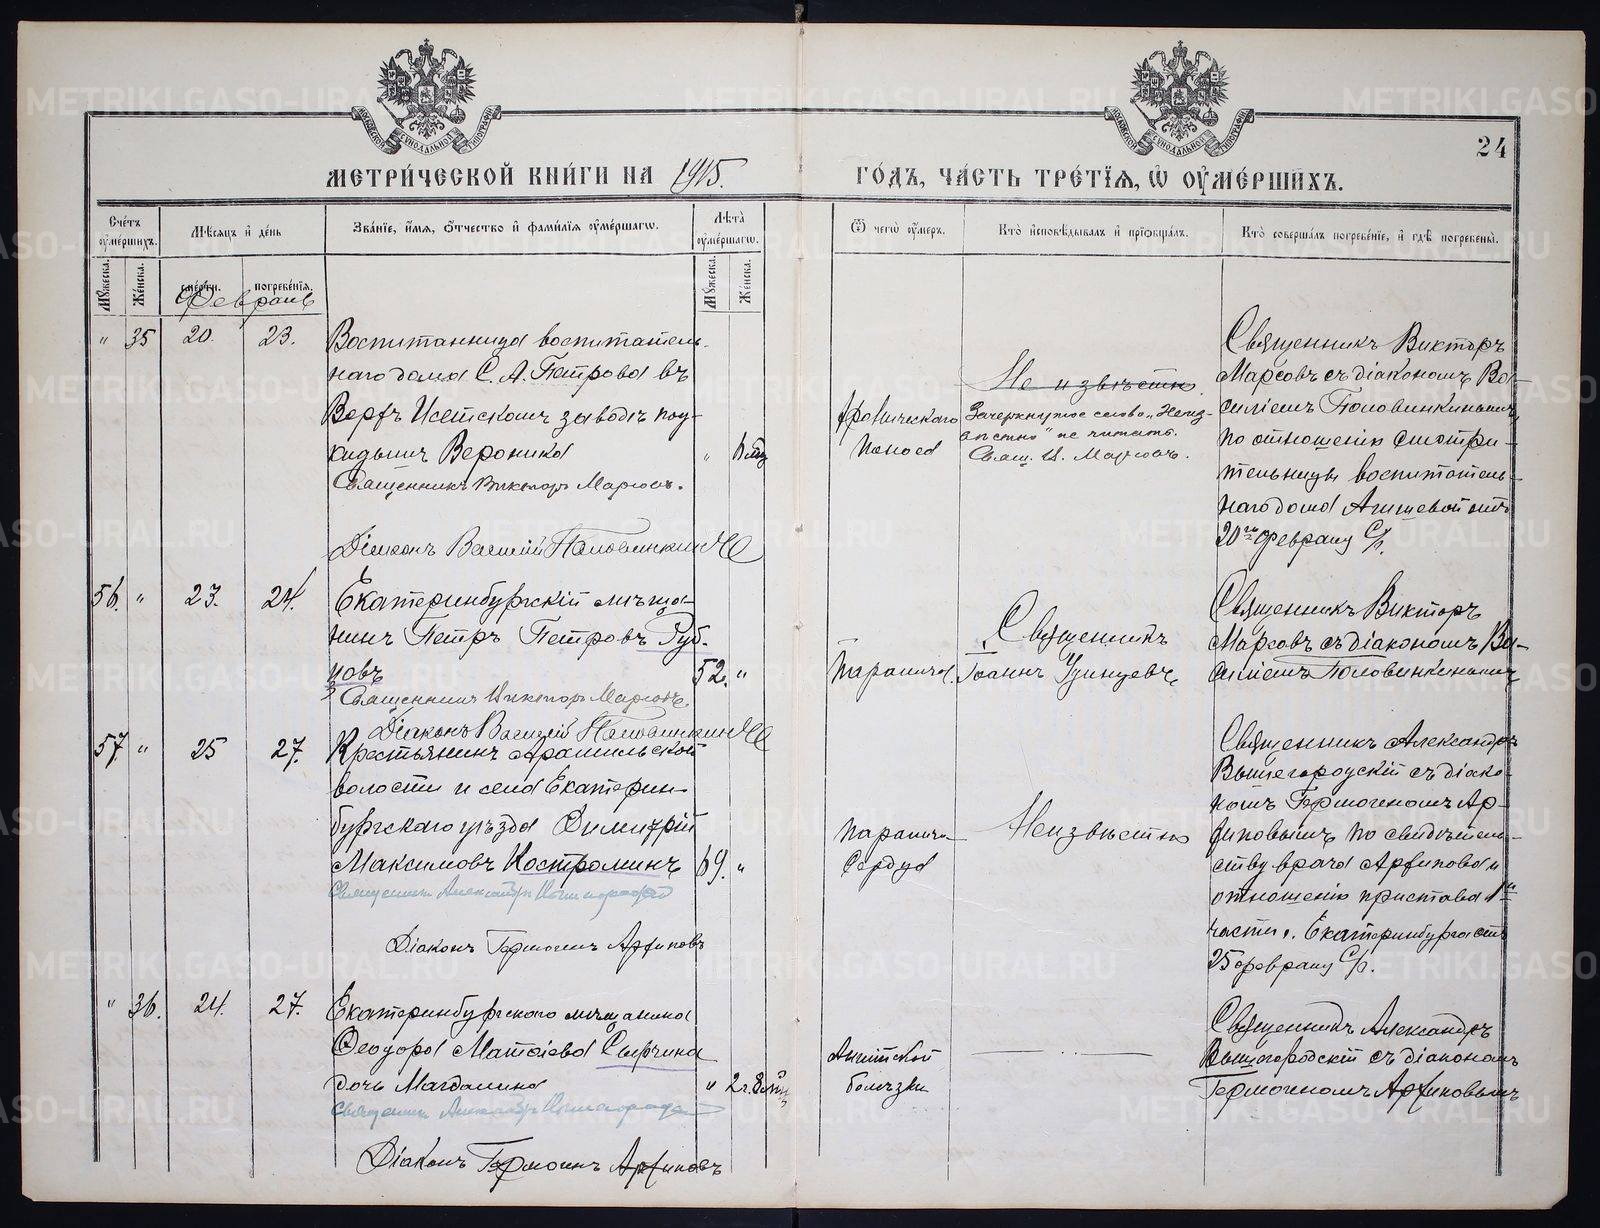 МЕТРИ́ЧЕСКОЙ КНИ́ГИ НА 1915.
ГО́ДЪ, ЧА́СТЬ ТРЕ́ТІѦ, Ѡ ОУМЕ́РШИХЪ.
24
Сче́тъ оумершихъ.
Мѣсяцъ и де́нь
Зва́ніе, и́мя, о́тчество и фами́лія оуме́ршагѡ.
Лѣта̀ оуме́ршагѡ.
Ѿ чегѡ̀ оу́меръ.
Кто̀ исповѣ́дывалъ и пріобща́лъ.
Кто̀ соверша́лъ погребе́ніе, и гдѣ̀ погребены̀.
Мꙋ́жеска.
Же́нска.
сме́рти.
погребе́нія.
Мꙋ́жеска.
Же́нска.
Февраль
" 35 20. 23.
Воспитанница воспитатель-
наго дома С. А. Петрова въ
Верхъ Исетскомъ заводѣ
Вероника
Священникъ Викторъ Марсовъ.
Діаконъ Василій Половинкинъ
"
поносъ
Не извѣстно
Зачеркнутое слово "Неиз-
вѣстно" не читать.
Свящ. В. Марсовъ.
Священникъ Викторъ
Марсовъ съ діакономъ Ва-
силіемъ Половинкинымъ,
по отношенію смотри-
тельницы воспитатель-
наго дома отъ
20го февраля
56. " 23. 24.
Екатеринбургскій мѣща-
нинъ Петръ Петровъ Руб-
цовъ
Священникъ Викторъ Марсовъ.
Діаконъ Василій Половинкинъ
52. "
Параличъ.
Священникъ
Іоаннъ
Священникъ Викторъ
Марсовъ съ діакономъ Ва-
силіемъ Половинкинымъ
57. " 25 27.
Крестьянинъ Арамильской
волости и села Екатерин-
бургскаго уѣзда Димитрій
Максимовъ Костроминъ
Священникъ Александръ Вышегородскій
Діаконъ Гермогенъ Арфиповъ
69. "
Параличъ
Сердца
Неизвѣстно
Священникъ Александръ
Вышегородскій съ діако-
номъ Гермогеномъ Ар-
фиповымъ по свидѣтель-
ству врача Арфипова и
отношенію пристава 1й
части г. Екатеринбурга отъ
25 февраля
" 36. 24. 27.
Екатеринбургскаго мѣщанина
Ѳеодора Матѳіева Сырчина
дочь Магдалина
Священникъ Александръ Вышегородскій
Діаконъ Гермогенъ Арфиповъ
" 2 г. 8 мѣс.
Англійской
болѣзни
Священникъ Александръ
Вышегородскій съ діакономъ
Гермогеномъ Арфиповымъ
METRIKI.GASO-URAL.RU